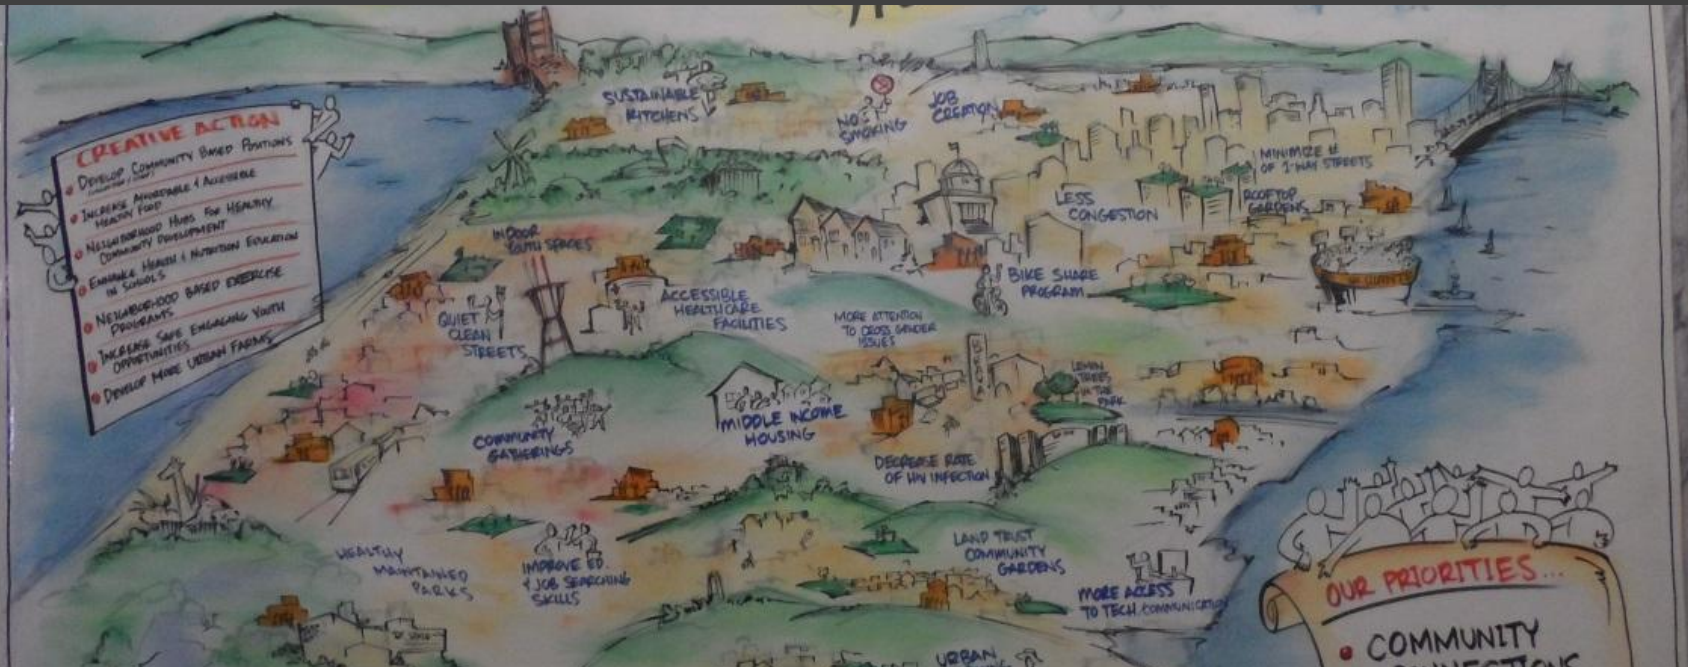 CREATIVE ACTION
DEVELOP COMMUNITY BASED POSITIONS
INCREASE AFFORDABLE & ACCESSIBLE
HEALTHY FOOD
NEIGHBORHOOD HUBS FOR HEALTHY
COMMUNITY DEVELOPMENT
ENHANCE HEALTH & NUTRITION EDUCATION
IN SCHOOLS
NEIGHBORHOOD BASED EXERCISE
PROGRAMS
INCREASE SAFE ENGAGING YOUTH
OPPORTUNITIES
DEVELOP MORE URBAN FARMS
SUSTAINABLE
KITCHENS
NO
SMOKING
JOB
CREATION
MINIMIZE #
OF 1-WAY STREETS
ROOFTOP
GARDENS
LESS
CONGESTION
INDOOR
YOUTH SPACES
BIKE SHARE
PROGRAM
QUIET
CLEAN
STREETS
ACCESSIBLE
HEALTHCARE
FACILITIES
MORE ATTENTION
TO CROSS GENDER
ISSUES
LEMON
TREES
IN THE
PARK
COMMUNITY
GATHERINGS
MIDDLE INCOME
HOUSING
DECREASE RATE
OF HIV INFECTION
HEALTHY
MAINTAINED
PARKS
IMPROVE ED.
& JOB SEARCHING
SKILLS
LAND TRUST
COMMUNITY
GARDENS
MORE ACCESS
TO TECH COMMUNICATION
URBAN
OUR PRIORITIES...
COMMUNITY